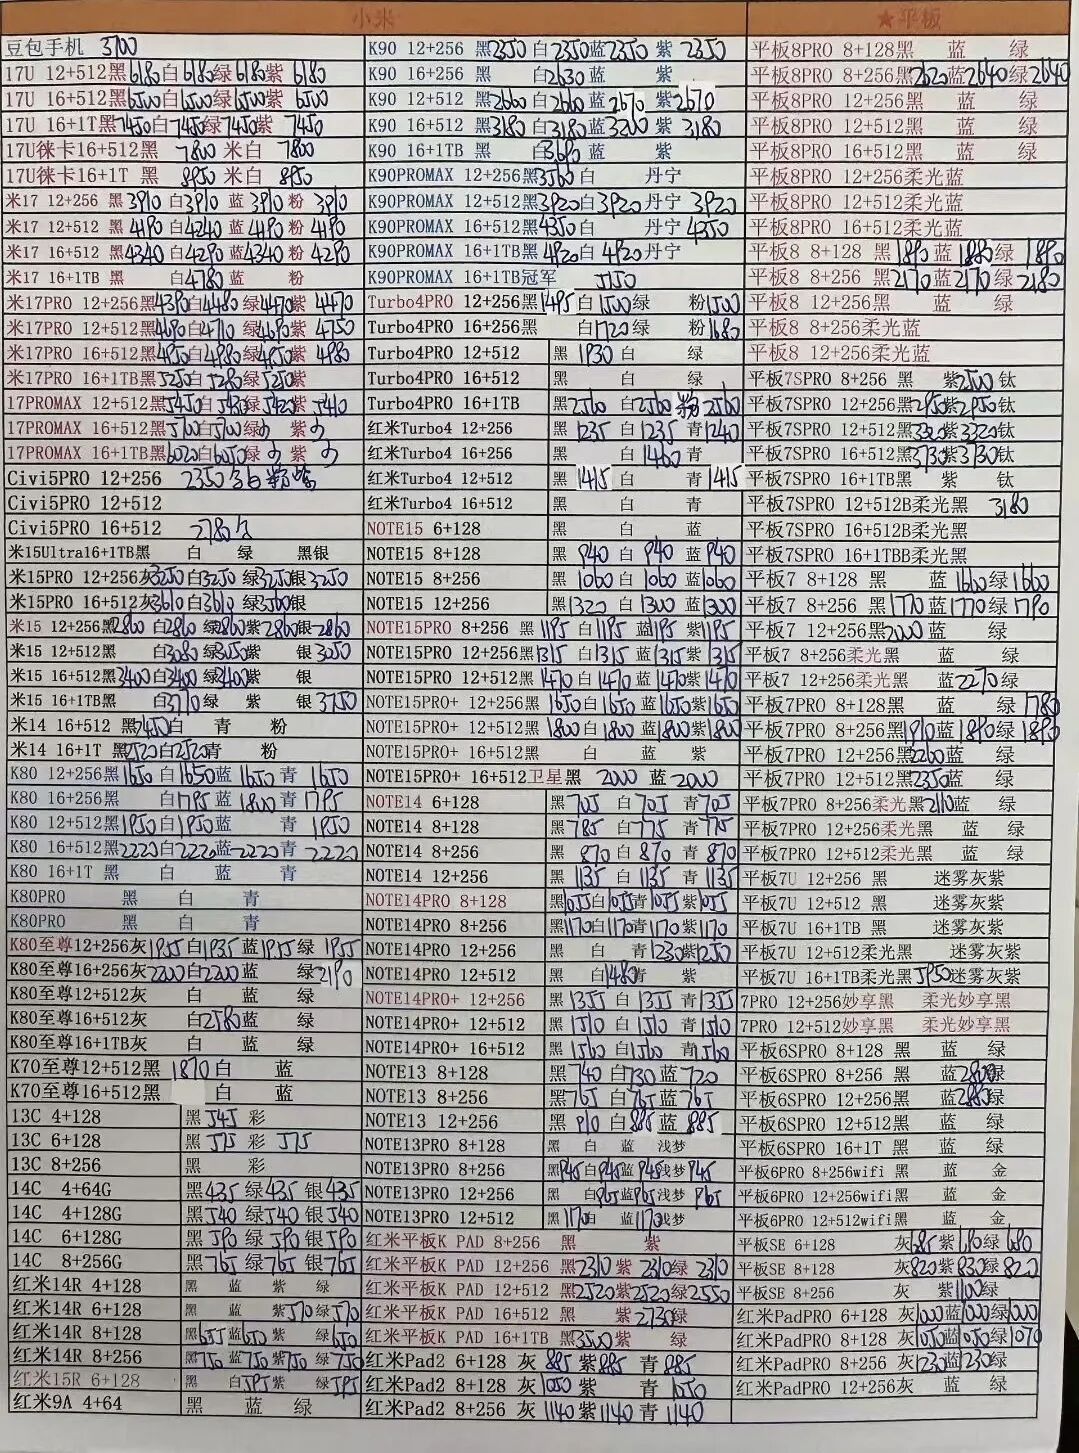 小米
豆包手机 3700
17U 12+512黑6180白6180绿6180紫 6180
17U 16+512黑6500白6500绿6500紫 6500
17U 16+1T黑7450白7450绿7450紫 7450
17U徕卡16+512黑 7800 米白 7800
17U徕卡16+1T 黑 8950 米白 8950
米17 12+256 黑3910白3910 蓝 3910 粉 3910
米17 12+512 黑 4190 白4240 蓝 4190 粉 4190
米17 16+512 黑4340 白4290 蓝4340 粉 4290
米17 16+1TB黑 白4780蓝 粉
米17PRO 12+256黑4390白4480 绿4470紫 4470
米17PRO 12+512黑4690白4710 绿4690紫 4750
米17PRO 16+512黑4950白4980绿4950紫 4980
米17PRO 16+1TB黑5250白5280绿5250紫
17PROMAX 12+512黑5450白5430绿5420紫 5410
17PROMAX 16+512黑5700白5700绿 紫
17PROMAX 16+1TB黑6020白6050绿 紫
Civi5PRO 12+256 2350 白 粉 紫
Civi5PRO 12+512
Civi5PRO 16+512 2780
米15Ultra16+1TB黑 白 绿 黑银
米15PRO 12+256灰3250白3250 绿3250银3250
米15PRO 16+512灰3610白3610 绿3560银
米15 12+256黑2860 白2860 绿2860紫2860银2860
米15 12+512黑 白3080 绿3050紫 银3050
米15 16+512黑3400白3400 绿3400紫 银
米15 16+1TB黑 白3770绿 紫 银3750
米14 16+512 黑2450白 青 粉
米14 16+1T 黑2520白2520青 粉
K80 12+256黑1650 白1650蓝 1650 青 1650
K80 16+256黑 白1795 蓝 1800 青 1795
K80 12+512黑1950白1950蓝 青 1950
K80 16+512黑2220白2220蓝2220青 2220
K80 16+1T 黑 白 蓝 青
K80PRO 黑 白 青
K80PRO 黑 白 青
K80至尊12+256灰1955白1935蓝1955绿 1955
K80至尊16+256灰2200白2200蓝 绿2190
K80至尊12+512灰 白 蓝 绿
K80至尊16+512灰 白2580蓝 绿
K80至尊16+1TB灰 白 蓝 绿
K70至尊12+512黑 1870 白 蓝
K70至尊16+512黑 白 蓝
13C 4+128 黑 545 彩
13C 6+128 黑 575 彩 575
13C 8+256 黑 彩
14C 4+64G 黑435 绿435 银435
14C 4+128G 黑540 绿540 银540
14C 6+128G 黑 590 绿590 银590
14C 8+256G 黑765 绿765 银765
红米14R 4+128 黑 蓝 紫 绿
红米14R 6+128 黑 蓝 紫570绿570
红米14R 8+128 黑655蓝650紫 绿650
红米14R 8+256 黑750 蓝750紫750 绿 750
红米15R 6+128 黑 白595紫 绿595
红米9A 4+64 黑 蓝 绿
K90 12+256 黑2350 白2350蓝2350 紫 2350
K90 16+256 黑 白2630蓝 紫
K90 12+512 黑2660 白2660 蓝2670 紫2670
K90 16+512 黑3180 白3180蓝3200 紫 3180
K90 16+1TB 黑 白3690蓝 紫
K90PROMAX 12+256黑3560白 丹宁
K90PROMAX 12+512黑3920白3920丹宁 3920
K90PROMAX 16+512黑4350白 丹宁 4350
K90PROMAX 16+1TB黑4920白 4920丹宁
K90PROMAX 16+1TB冠军 5150
Turbo4PRO 12+256黑1495白1500绿 粉1500
Turbo4PRO 16+256黑 白1720绿 粉1680
Turbo4PRO 12+512 黑 1930 白 绿
Turbo4PRO 16+512 黑 白 绿
Turbo4PRO 16+1TB 黑2560 白2560 粉2560
红米Turbo4 12+256 黑1235 白1235 青1240
红米Turbo4 16+256 黑 白1460 青
红米Turbo4 12+512 黑 1415 白 青1415
红米Turbo4 16+512 黑 白 青
NOTE15 6+128 黑 白 蓝
NOTE15 8+128 黑 940 白 940 蓝940
NOTE15 8+256 黑1060 白1060 蓝1060
NOTE15 12+256 黑1320 白1300 蓝1300
NOTE15PRO 8+256 黑 1195 白1195 蓝1195 紫1195
NOTE15PRO 12+256黑1315 白1315 蓝1315紫1315
NOTE15PRO 12+512黑1470 白1470 蓝1470紫1470
NOTE15PRO+ 12+256黑 1650 白1650 蓝1650紫1650
NOTE15PRO+ 12+512黑 1800 白1800 蓝1800紫1800
NOTE15PRO+ 16+512黑 白 蓝 紫
NOTE15PRO+ 16+512卫星黑 2000 蓝2000
NOTE14 6+128 黑705 白705 青705
NOTE14 8+128 黑785 白775 青775
NOTE14 8+256 黑 870 白 870 青 870
NOTE14 12+256 黑 1135 白 1135 青1135
NOTE14PRO 8+128 黑1055白1055青1055紫1055
NOTE14PRO 8+256 黑1170白1170青1170紫1170
NOTE14PRO 12+256 黑 白 青1230紫1250
NOTE14PRO 12+512 黑 白1480青 紫
NOTE14PRO+ 12+256 黑1355 白1355 青1355
NOTE14PRO+ 12+512 黑1510 白1510 青1510
NOTE14PRO+ 16+512 黑1560 白1560 青1560
NOTE13 8+128 黑740 白730蓝 720
NOTE13 8+256 黑765 白765蓝765
NOTE13 12+256 黑 910 白885蓝 885
NOTE13PRO 8+128 黑 白 蓝 浅梦
NOTE13PRO 8+256 黑945白945蓝945浅梦945
NOTE13PRO 12+256 黑 白965蓝965浅梦 965
NOTE13PRO 12+512 黑1170白 蓝1170浅梦
红米平板K PAD 8+256 黑 紫
红米平板K PAD 12+256 黑2310紫 2310绿 2310
红米平板K PAD 12+512 黑2520紫2520绿2550
红米平板K PAD 16+512 黑 紫2730绿
红米平板K PAD 16+1TB 黑3500紫 绿
红米Pad2 6+128 灰 885 紫885 青 885
红米Pad2 8+128 灰1050紫 青 1050
红米Pad2 8+256 灰 1140紫1140青 1140
★平板
平板8PRO 8+128黑 蓝 绿
平板8PRO 8+256黑2620蓝2640绿2640
平板8PRO 12+256黑 蓝 绿
平板8PRO 12+512黑 蓝 绿
平板8PRO 16+512黑 蓝 绿
平板8PRO 12+256柔光蓝
平板8PRO 12+512柔光蓝
平板8PRO 16+512柔光蓝
平板8 8+128 黑1890 蓝1880绿 1890
平板8 8+256 黑2170蓝2170 绿 2180
平板8 12+256黑 蓝 绿
平板8 8+256柔光蓝
平板8 12+256柔光蓝
平板7SPRO 8+256 黑 紫2500 钛
平板7SPRO 12+256黑2950紫2950钛
平板7SPRO 12+512黑3320紫3320钛
平板7SPRO 16+512黑3730紫3730钛
平板7SPRO 16+1TB黑 紫 钛
平板7SPRO 12+512B柔光黑 3180
平板7SPRO 16+512B柔光黑
平板7SPRO 16+1TBB柔光黑
平板7 8+128 黑 蓝 1660绿1660
平板7 8+256 黑1770蓝1770绿1790
平板7 12+256黑2000蓝 绿
平板7 8+256柔光黑 蓝 绿
平板7 12+256柔光黑 蓝2270绿
平板7PRO 8+128黑 蓝 绿1780
平板7PRO 8+256黑1910蓝1890绿1890
平板7PRO 12+256黑2260蓝 绿
平板7PRO 12+512黑2350蓝 绿
平板7PRO 8+256柔光黑2110蓝 绿
平板7PRO 12+256柔光黑 蓝 绿
平板7PRO 12+512柔光黑 蓝 绿
平板7U 12+256 黑 迷雾灰紫
平板7U 12+512 黑 迷雾灰紫
平板7U 16+1TB 黑 迷雾灰紫
平板7U 12+512柔光黑 迷雾灰紫
平板7U 16+1TB柔光黑5950迷雾灰紫
7PRO 12+256妙享黑 柔光妙享黑
7PRO 12+512妙享黑 柔光妙享黑
平板6SPRO 8+128 黑 蓝 绿
平板6SPRO 8+256 黑 蓝2800绿
平板6SPRO 12+256黑 蓝2880绿
平板6SPRO 12+512黑 蓝 绿
平板6SPRO 16+1T 黑 蓝 绿
平板6PRO 8+256wifi 黑 蓝 金
平板6PRO 12+256wifi黑 蓝 金
平板6PRO 12+512wifi黑 蓝 金
平板SE 6+128 灰685 紫690绿 680
平板SE 8+128 灰820紫830绿820
平板SE 8+256 灰 紫1100绿
红米PadPRO 6+128 灰1000蓝1000绿1000
红米PadPRO 8+128 灰1050蓝1050绿1070
红米PadPRO 8+256 灰1230蓝1230绿
红米PadPRO 12+256灰 蓝 绿